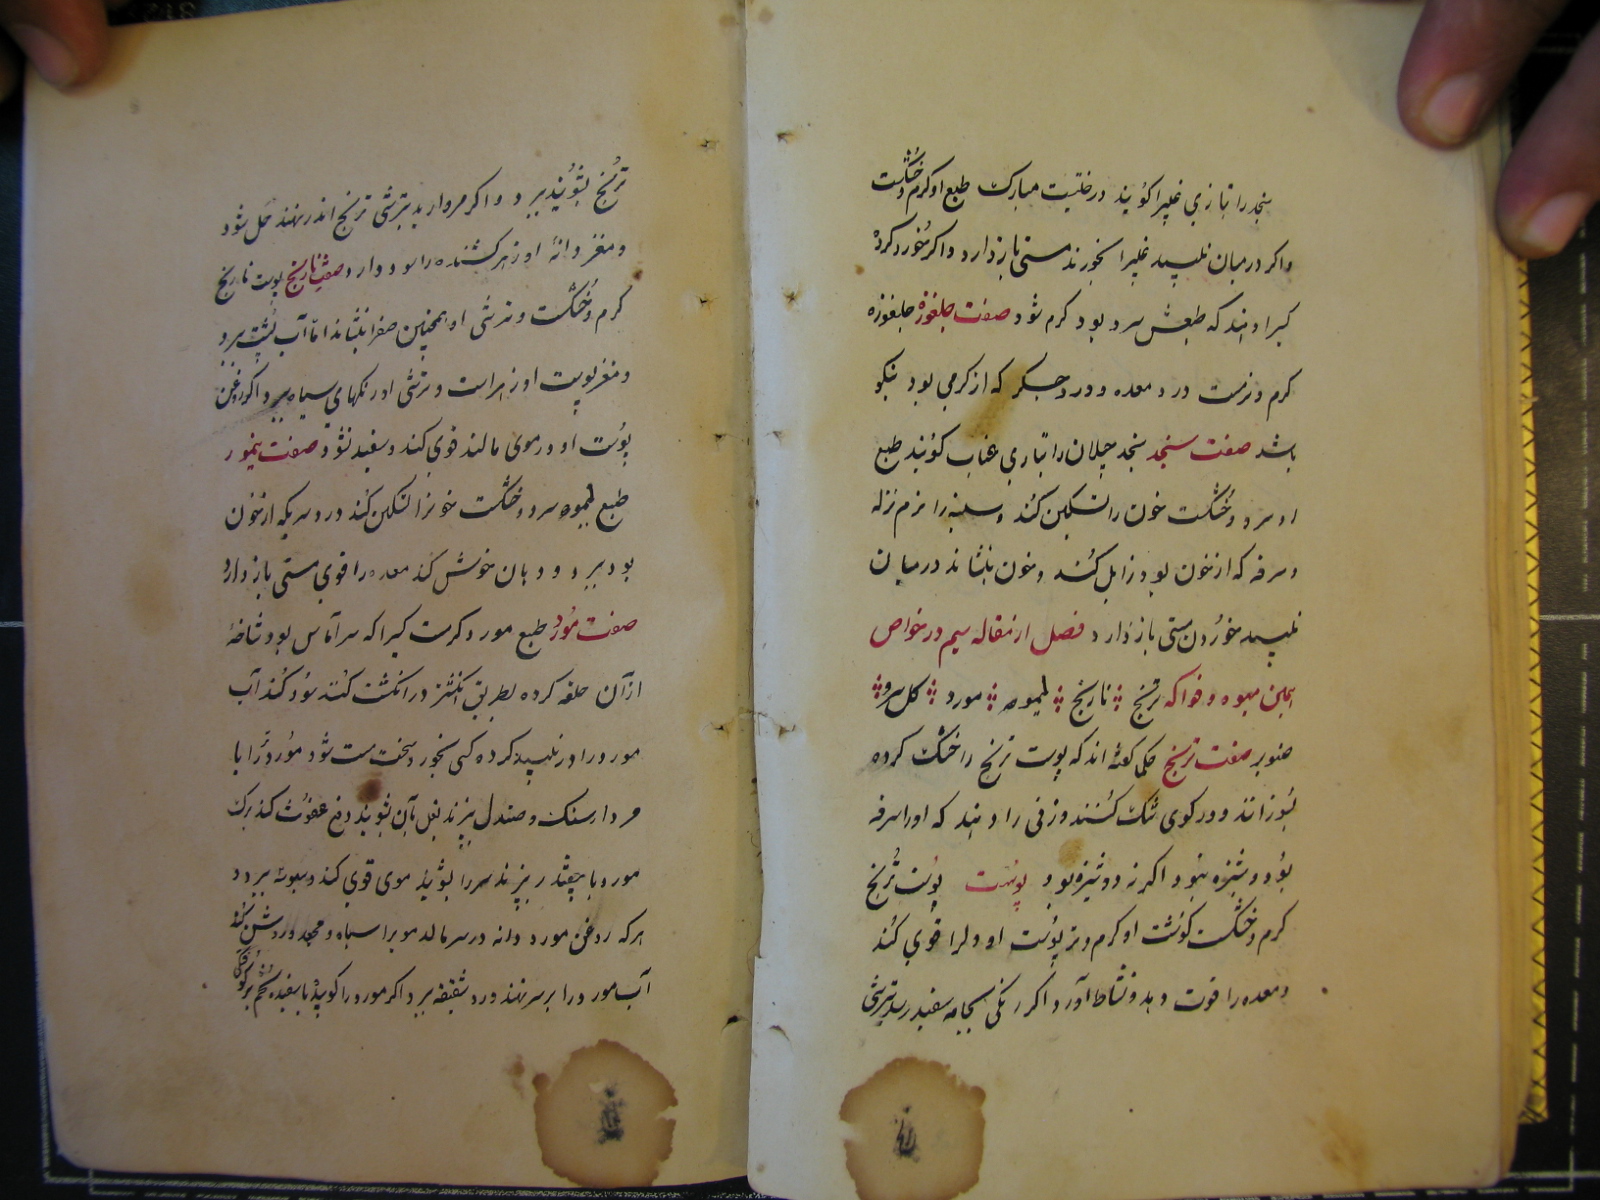 سنجد را بتازی غبیرا کویند درختیست مبارک طبع او کرم و خشکست
و اکر در میان نبیید غبیرا بخورند مستی باز دارد و اکر خورد کرده
کیرا دهند که طبعش سرد بود کرم شود صفت جلغوزه جلغوزه
کرم و ترست درد معده و درد جکر که از کرمی بود نیکو
باشد صفت سنجد سنجد چیلان را بتازی عناب کویند طبع
او سرد و خشکست خون را تسکین کند و سینه را نرم نزله
و سرفه که از خون بود زایل کند و خون بنشاند در میان
نبیید خوردن مستی باز دارد فصل از مقاله سیم در خواص
این میوه و فواکه ترنج نارنج لیمو مورد کل سرو
صنوبر صفت ترنج حکما کفته اند که پوست ترنج را خشک کرده
بسوزانند و در کوی تنک کنند و زنی را دهند که او را سرفه
بود دوشیزه نبود اکر نه دوشیزه بود پوست پوست ترنج
کرم و خشکست کوشت او کرم و تر پوست او دلرا قوی کند
و معده را قوت دهد و نشاط آورد اکر رنکی بجامه سفید رسد بترشی
ترنج بشویند ببرد و اکر مروارید بترشی ترنج اندر نهند حل شود
و مغز دانه او زهر کشنده را سود دارد صفت نارنج پوست نارنج
کرم و خشکست و ترشی او همچنین صفرا بنشاند اما آب پشت ببرد
و مغز پوست او زهر است و ترشی او رنکهای سیاه ببرد اکر روغن
پوست او در موی مالند قوی کند و سفید نشود صفت لیمو
طبع لیمو سرد و خشکست خونرا تسکین کند درد سر که از خون
بود ببرد و دهان خوش کند معده را قوی مستی باز دارد
صفت مورد طبع مورد کرمست کیرا که سر آماس بود شاخهٔ
از آن حلقه کرده بطریق انکشتر در انکشت کند سود کند آب
مورد را در نبیید کرده کسی بخورد سخت مست شود مورد را با
مردارسنک و صندل بپزند بغل بآن بشویند دفع عفونت کند برک
مورد با چغندر بپزند سر را بشوید موی قوی کند و سبوسه ببرد
هر که روغن مورد دانه در سر مالد مو را سیاه و مجعد و روشن کند
آب مورد را بر سر نهند درد شقیقه ببرد اکر مورد را کوبیده با سفیده تخم مرغ